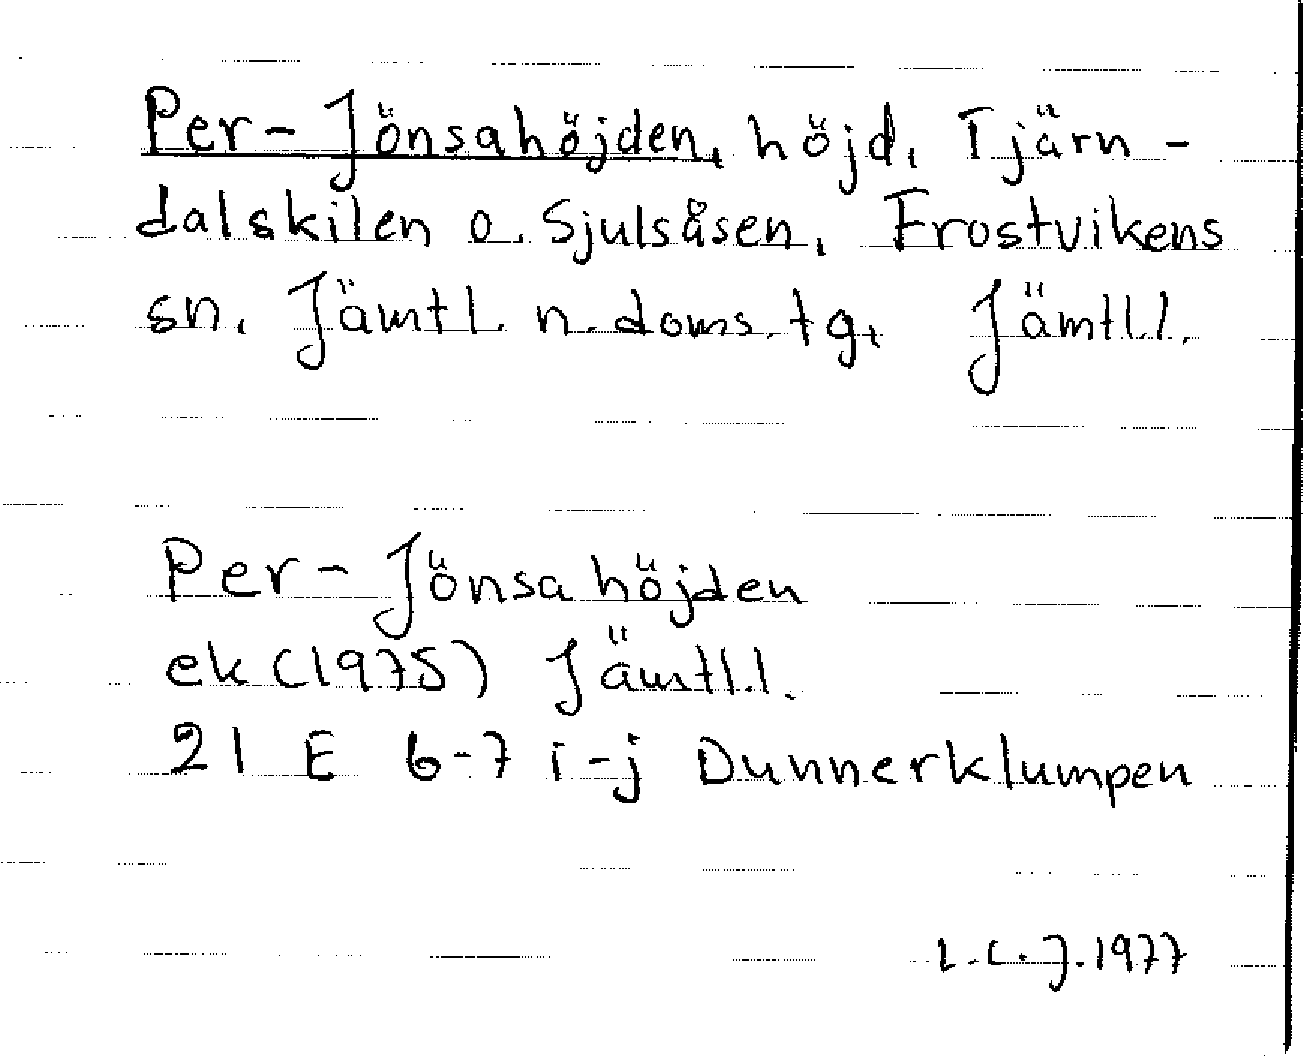 Per-Jönsahöjden, höjd, Tjärn-
dalskilen o. Sjulsåsen, Frostvikens
sn, Jämtl. n. doms. tg, Jämtl.l.
Per-Jönsahöjden
ek (1975) Jämtl.l.
21 E 6-7 i-j Dunnerklumpen
L.C.J. 1977